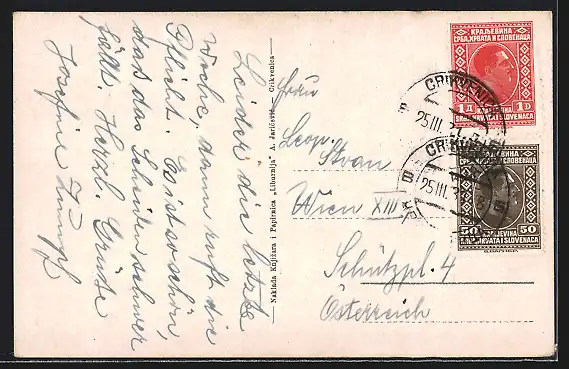 Leider die letzte
Woche, dann ruft die
Pflicht. Es ist so schön,
das das Scheiden schwer
fällt. Herzl. Grüße
Josefine
Naklada Knjižara i Papirnica „Liburnija" A. Jaričević - Crikvenica
Frau
Leop.
Wien XIII
Schützpl. 4
Österreich
КРАЉЕВИНА
СРБА, ХРВАТА И СЛОВЕНАЦА
1 Д 1 D
KRALJEVINA
SRBA, HRVATA I SLOVENACA
CRIKVENICA
25 III.
КРАЉЕВИНА
СРБА, ХРВАТА И СЛОВЕНАЦА
50 50
KRALJEVINA
SRBA, HRVATA I SLOVENACA
CRIKVENICA
25 III.